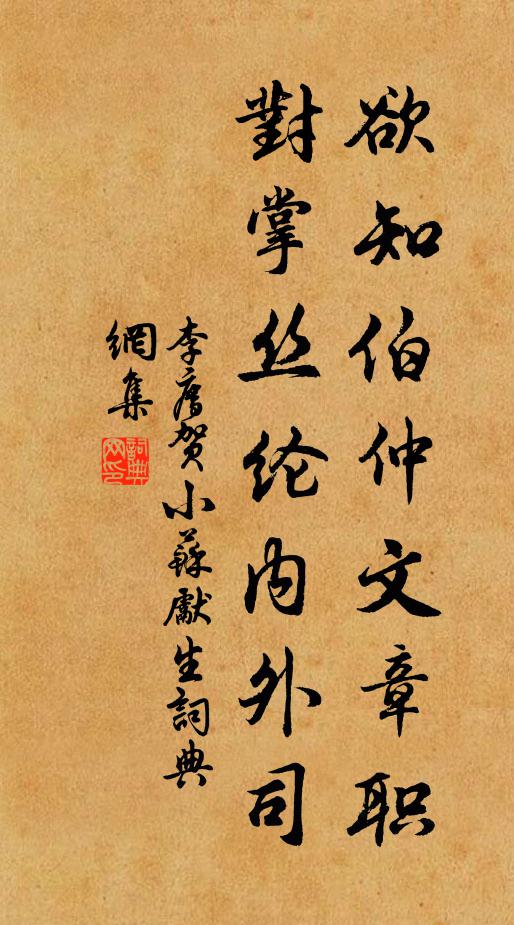 欲知伯仲文章职
對掌丝纶内外司
李廌賀小蘇獻生詞典
網集
詞典網印